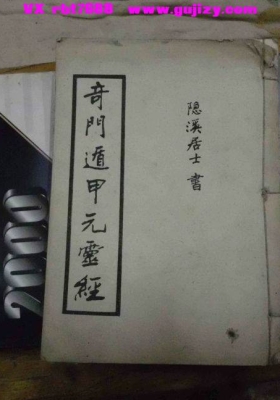 www.gujizy.com
奇門遁甲元靈經
隐溪居士 書
2000